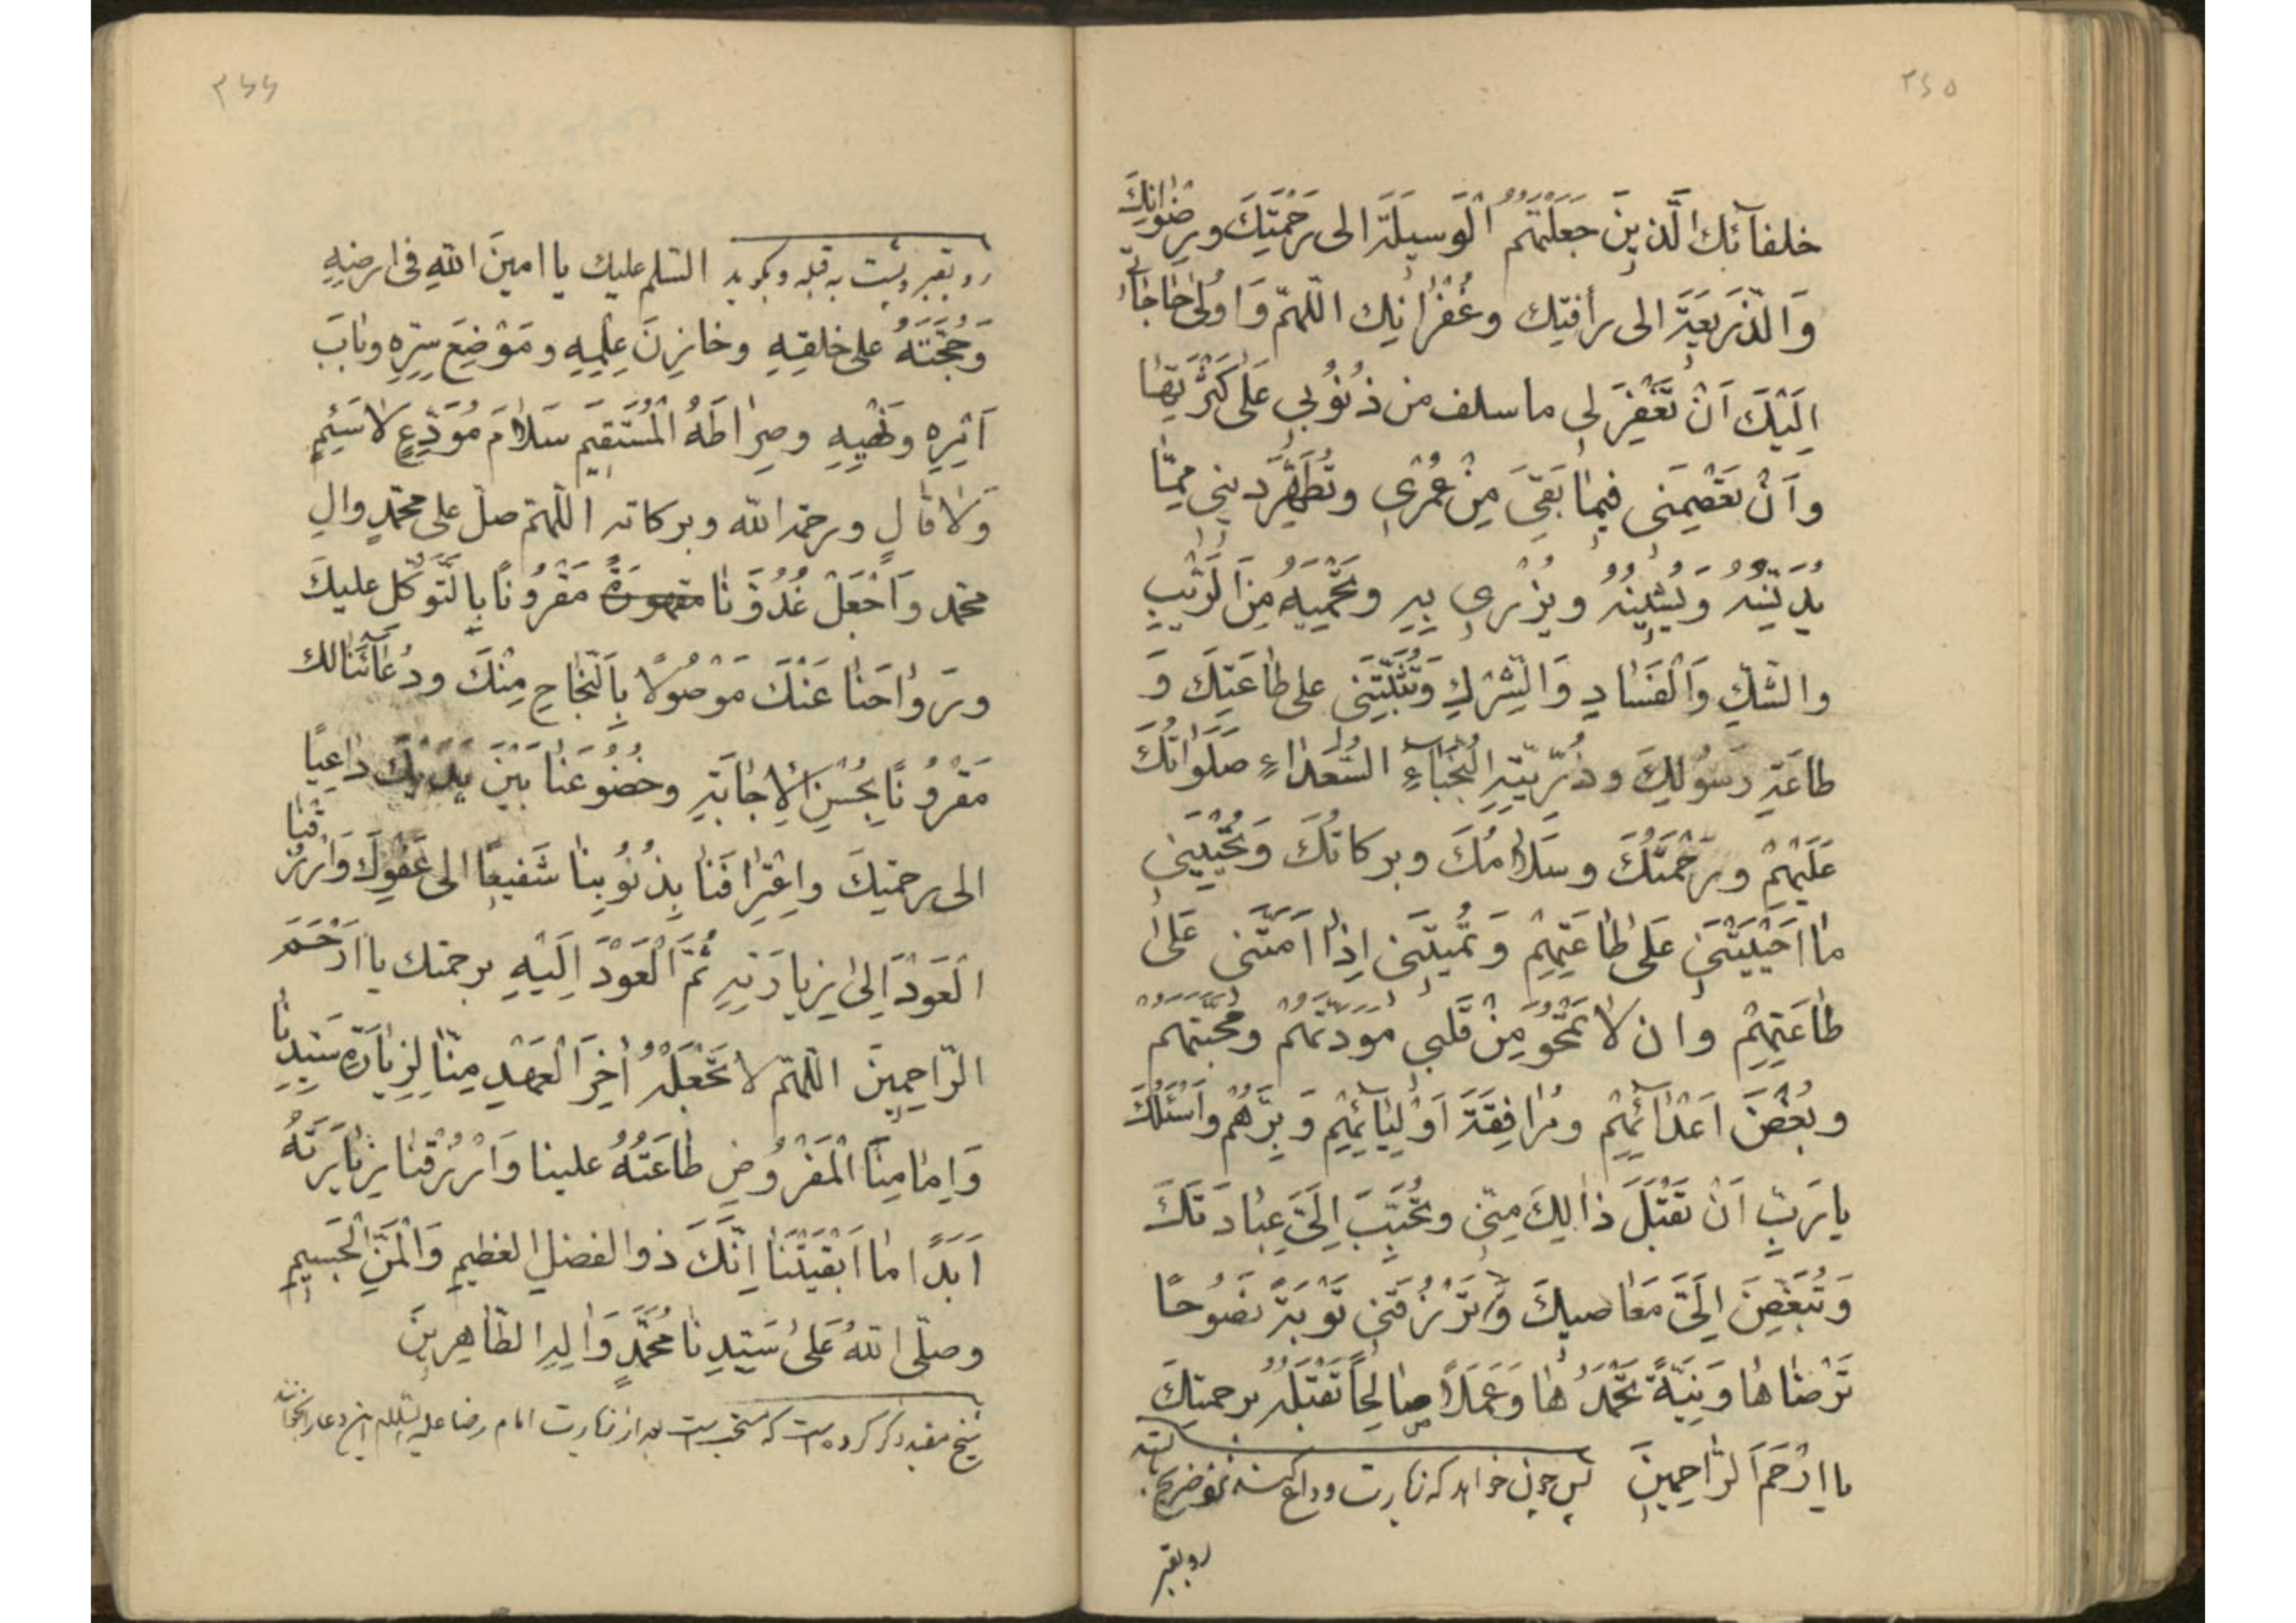 ۳۶۵
خلفآئك الَّذينَ جَعَلْتَهُمُ الْوَسيلَةَ الى رَحْمَتِكَ ورِضْوانِكَ
وَالذَّريعَةَ الى رأفتِك وغُفْرانِك اللّهمّ وَاُولىٰ حاجاتى
اِلَيْكَ اَنْ تَغْفِرَ لى ما سلف من ذُنُوبي عَلىٰ كَثْرَتِها
واَنْ تَعْصِمَنى فيما بَقِىَ مِنْ عُمْرى وتُطَهِّرَ دينى مِمّا
يُدَنِّسُهُ وَيَشينُهُ ويُزْرى بِهِ وتَحْمِيَهُ مِنَ الرَّيْبِ
والشّكِّ وَالْفَسادِ وَالشِّرْكِ وَتُثَبِّتَنى على طاعَتِكَ وَ
طاعَةِ رَسُولِكَ وذُرِّيَّتِهِ النُّجَبآءِ السُّعَداءِ صَلَواتُكَ
عَلَيْهِمْ ورَحْمَتُكَ وسَلامُكَ وبركاتُكَ وَتُحْيِيَنى
ما اَحْيَيْتَنى عَلىٰ طاعَتِهِمْ وَتُميتَنى اِذا اَمَتَّنى عَلىٰ
طاعَتِهِمْ وان لا تَمْحُوَ مِنْ قَلْبي مَوَدَّتَهُمْ ومَحَبَّتَهُمْ
وبُغْضَ اَعْدائِهِمْ ومُرافِقَةَ اَوْلِيائِهِمْ وَبِرَّهُمْ واَسْئَلُكَ
يا رَبِّ اَنْ تَقْبَلَ ذالِكَ مِنّى وتُحَبِّبَ اِلَىَّ عِبادَتَكَ
وَتُبَغِّضَ اِلَىَّ مَعاصيكَ وَتَرْزُقَنى تَوْبَةً نَصُوحًا
تَرْضاها وَنِيَّةً تَحْمَدُها وَعَمَلاً صالِحاً تَقْبَلُهُ برحمتِكَ
يا اَرْحَمَ الرّاحِمينَ پس چون خواهد كه زيارت وداع كند
رو بقبر
۳۶۶
رو بقبر وپشت به قبله وبگويد السّلم عليك يا امينَ اللّهِ فى ارضِهِ
وَحُجَّتَهُ على خلقِهِ وخازِنَ عِلْمِهِ ومَوْضِعَ سِرِّهِ وبابَ
اَمْرِهِ ونَهْيِهِ وصِراطَهُ الْمُسْتَقيمَ سَلامَ مُوَدِّعٍ لا سَئِمٍ
وَلا قالٍ ورحمة اللّه وبركاته اللّهمّ صلّ على محمّدٍ وآلِ
محمّد وَاجْعَلْ غُدُوَّنا مَقْرُونًا بِالتَّوَكُّلِ عليكَ
ورَواحَنا عَنْكَ مَوْصُولًا بِالنَّجاحِ مِنْكَ ودُعآئَنا لك
مَقْرُونًا بِحُسْنِ الْاِجابَةِ وخُضُوعَنا بَيْنَ يَدَيْكَ داعِيًا
الى رحمتِكَ واِعْتِرافَنا بِذُنُوبِنا شَفيعًا الى عَفْوِكَ وَارْزُقْنا
الْعَوْدَ اِلىٰ زِيارَتِهِ ثُمَّ الْعَوْدَ اِلَيْهِ برحمتك يا اَرْحَمَ
الرّاحِمينَ اللّهمّ لا تَجْعَلْهُ آخِرَ الْعَهْدِ مِنّا لِزِيارَةِ سَيِّدِنا
وَاِمامِنَا الْمَفْرُوضِ طاعَتُهُ علينا وَارْزُقنا زِيارَتَهُ
اَبَدًا ما اَبْقَيْتَنا اِنَّكَ ذوالفضلِ العظيمِ وَالْمَنِّ الْجَسيمِ
وصلّى اللّهُ عَلىٰ سَيِّدِنا مُحَمَّدٍ وَالِهِ الطّاهِرينَ
شيخ مفيد ذكر كرده است كه مستحب است بعد از زيارت امام رضا عليه السّلام اين دعا را بخواند